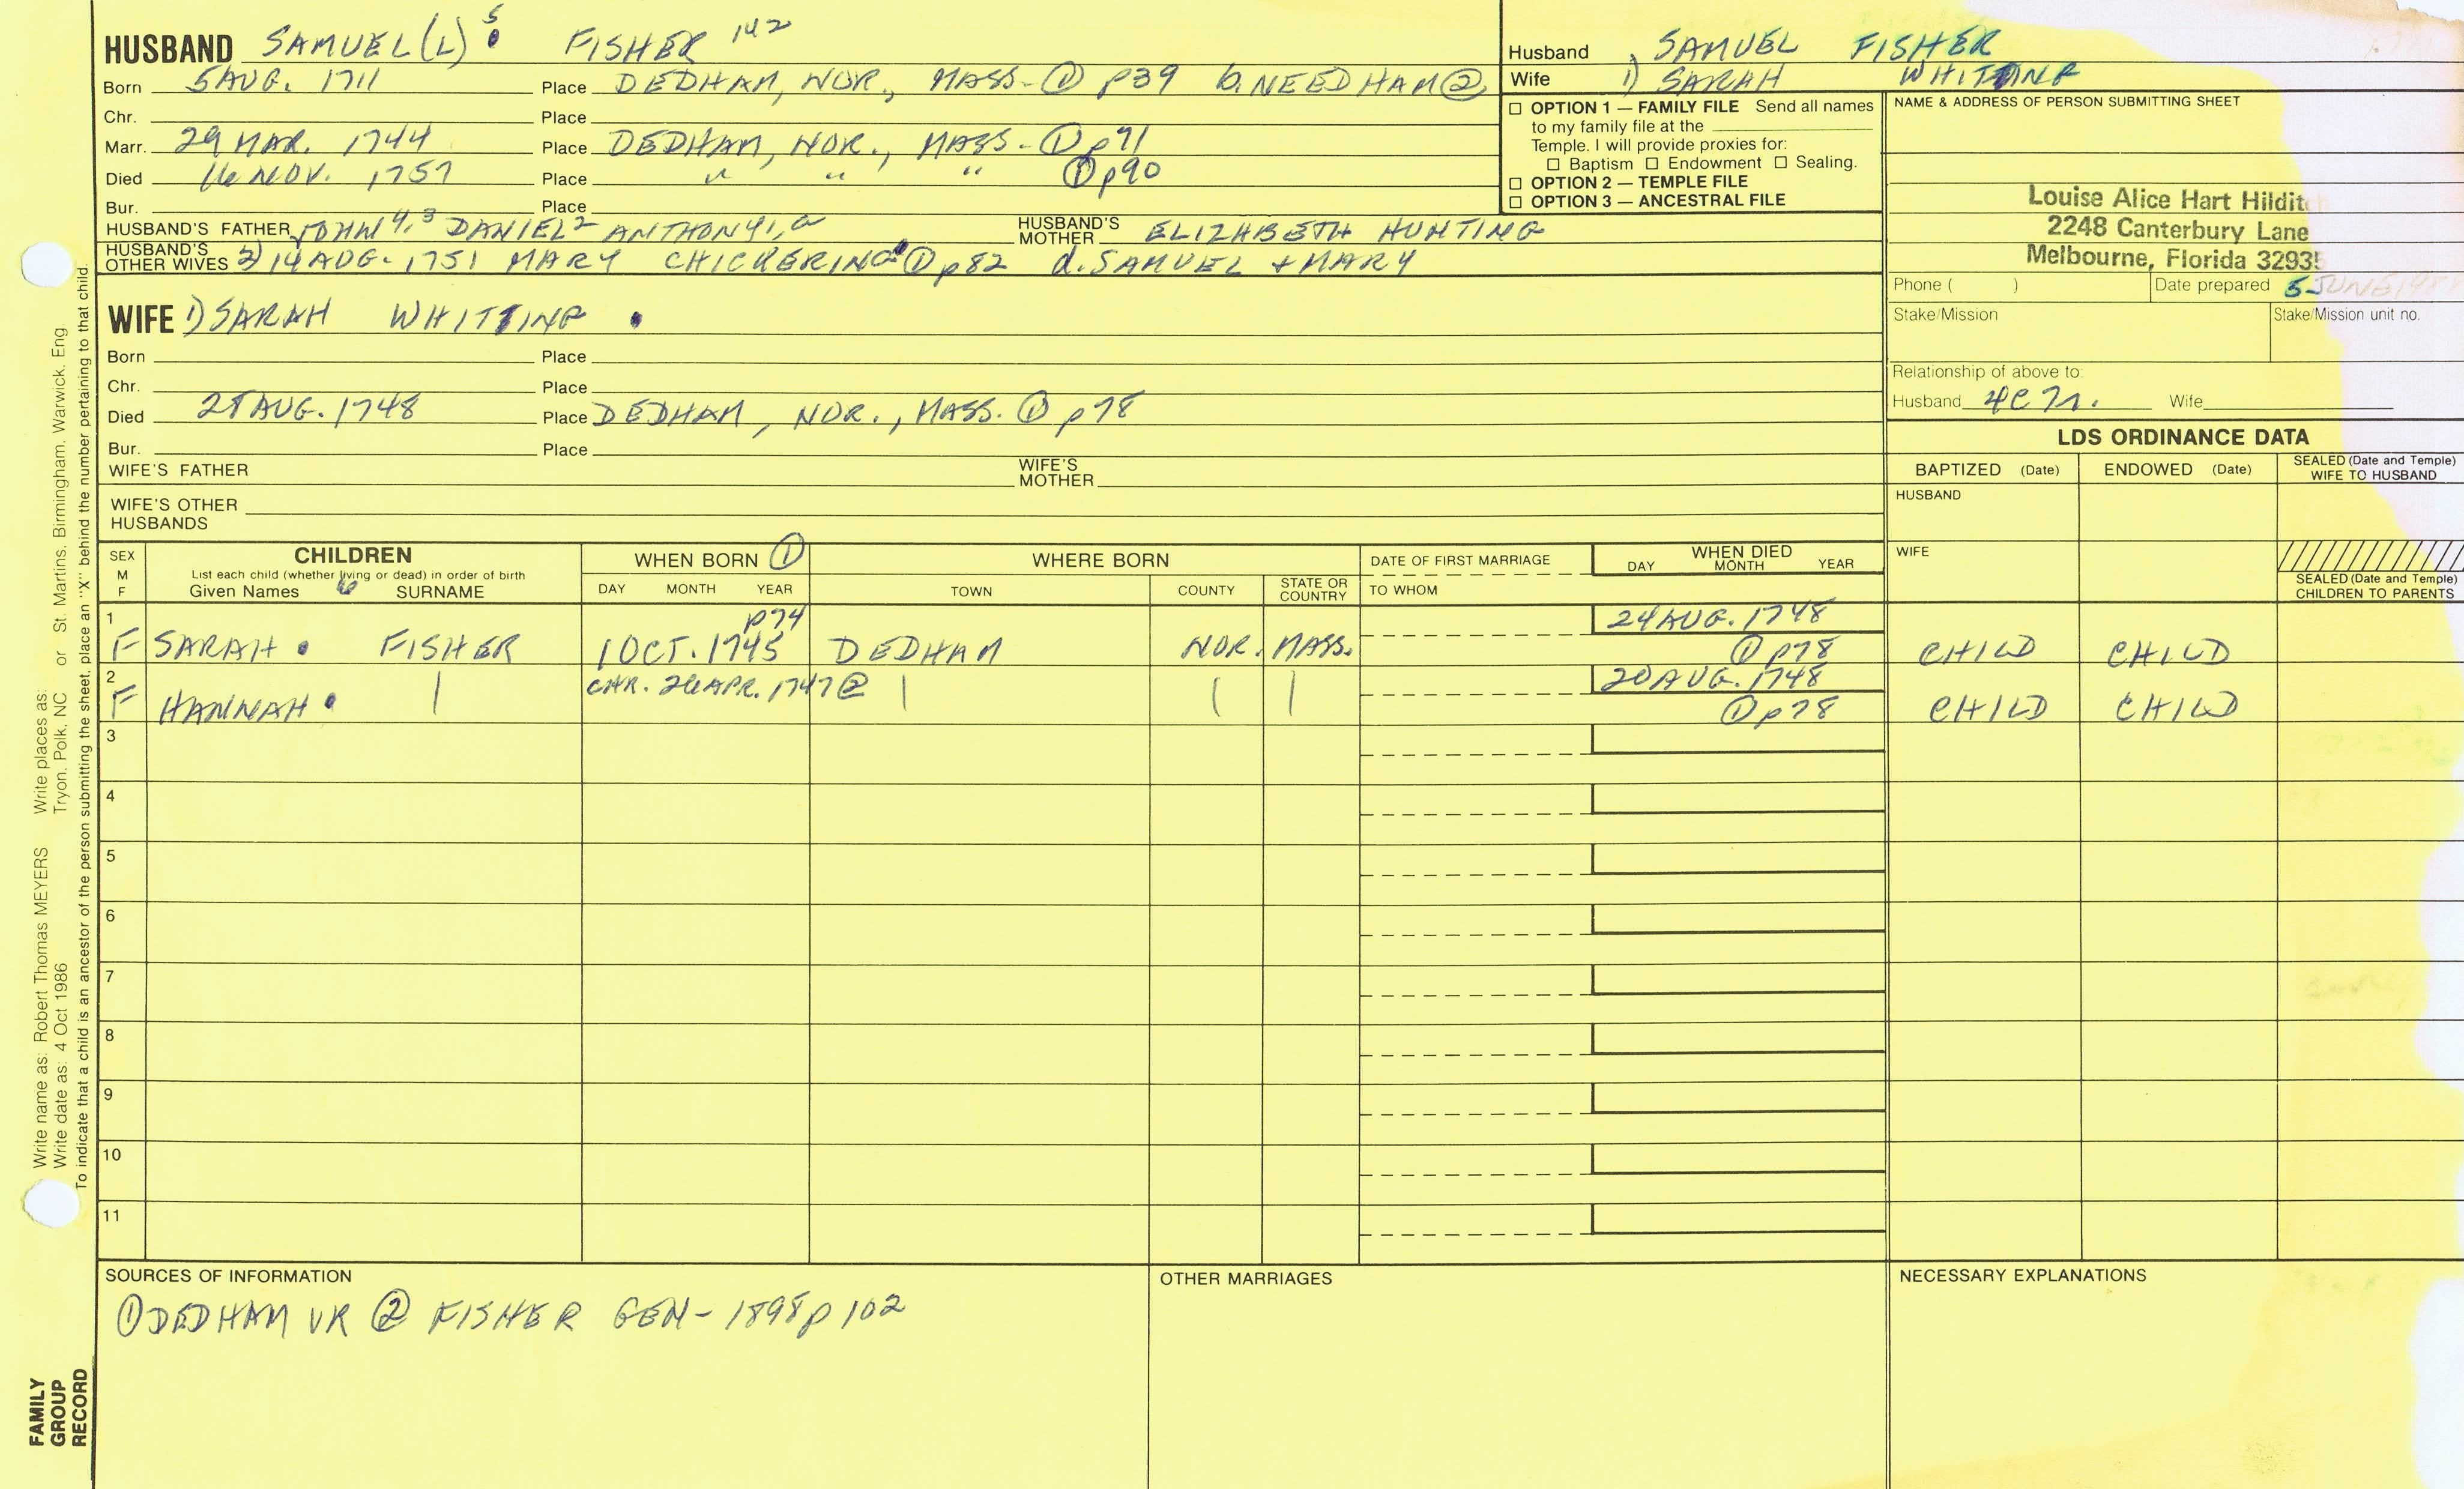 HUSBAND SAMUEL(L) 5 FISHER 142
Born 5 AUG. 1711 Place DEDHAM, NOR., MASS. ① p39 b. NEEDHAM ②
Chr. Place
Marr. 29 MAR. 1744 Place DEDHAM, NOR., MASS. ① p71
Died 16 NOV. 1757 Place " " " ① p90
Bur. Place
HUSBAND'S FATHER JOHN 4, 3 DANIEL 2 ANTHONY 1, a HUSBAND'S MOTHER ELIZABETH HUNTING
HUSBAND'S OTHER WIVES 2) 14 AUG. 1751 MARY CHICKERING ① p82 d. SAMUEL + MARY
WIFE 1) SARAH WHITING
Born Place
Chr. Place
Died 28 AUG. 1748 Place DEDHAM, NOR., MASS. ① p78
Bur. Place
WIFE'S FATHER WIFE'S MOTHER
WIFE'S OTHER HUSBANDS
Husband SAMUEL FISHER
Wife 1) SARAH WHITING
☐ OPTION 1 — FAMILY FILE Send all names
to my family file at the
Temple. I will provide proxies for:
☐ Baptism ☐ Endowment ☐ Sealing.
☐ OPTION 2 — TEMPLE FILE
☐ OPTION 3 — ANCESTRAL FILE
NAME & ADDRESS OF PERSON SUBMITTING SHEET
Louise Alice Hart Hildit
2248 Canterbury Lane
Melbourne, Florida 32935
Phone ( ) Date prepared 5 JUNE
Stake/Mission Stake/Mission unit no.
Relationship of above to:
Husband 4C7r. Wife
LDS ORDINANCE DATA
BAPTIZED (Date) ENDOWED (Date) SEALED (Date and Temple) WIFE TO HUSBAND
HUSBAND
WIFE
SEALED (Date and Temple) CHILDREN TO PARENTS
SEX M F
CHILDREN
List each child (whether living or dead) in order of birth
Given Names 6 SURNAME
WHEN BORN ①
DAY MONTH YEAR
WHERE BORN
TOWN COUNTY STATE OR COUNTRY
DATE OF FIRST MARRIAGE
TO WHOM
WHEN DIED
DAY MONTH YEAR
1 p74 24 AUG. 1748
F SARAH FISHER 1 OCT. 1745 DEDHAM NOR. MASS. ① p78 CHILD CHILD
2 CHR. 26 APR. 1747 ② 20 AUG. 1748
F HANNAH | | | | ① p78 CHILD CHILD
3
4
5
6
7
8
9
10
11
SOURCES OF INFORMATION
① DEDHAM VR ② FISHER GEN - 1898 p 102
OTHER MARRIAGES
NECESSARY EXPLANATIONS
Write name as: Robert Thomas MEYERS Write places as: St. Martins, Birmingham, Warwick, Eng
Write date as: 4 Oct 1986 Tryon, Polk, NC or
To indicate that a child is an ancestor of the person submitting the sheet, place an "X" behind the number pertaining to that child.
FAMILY
GROUP
RECORD